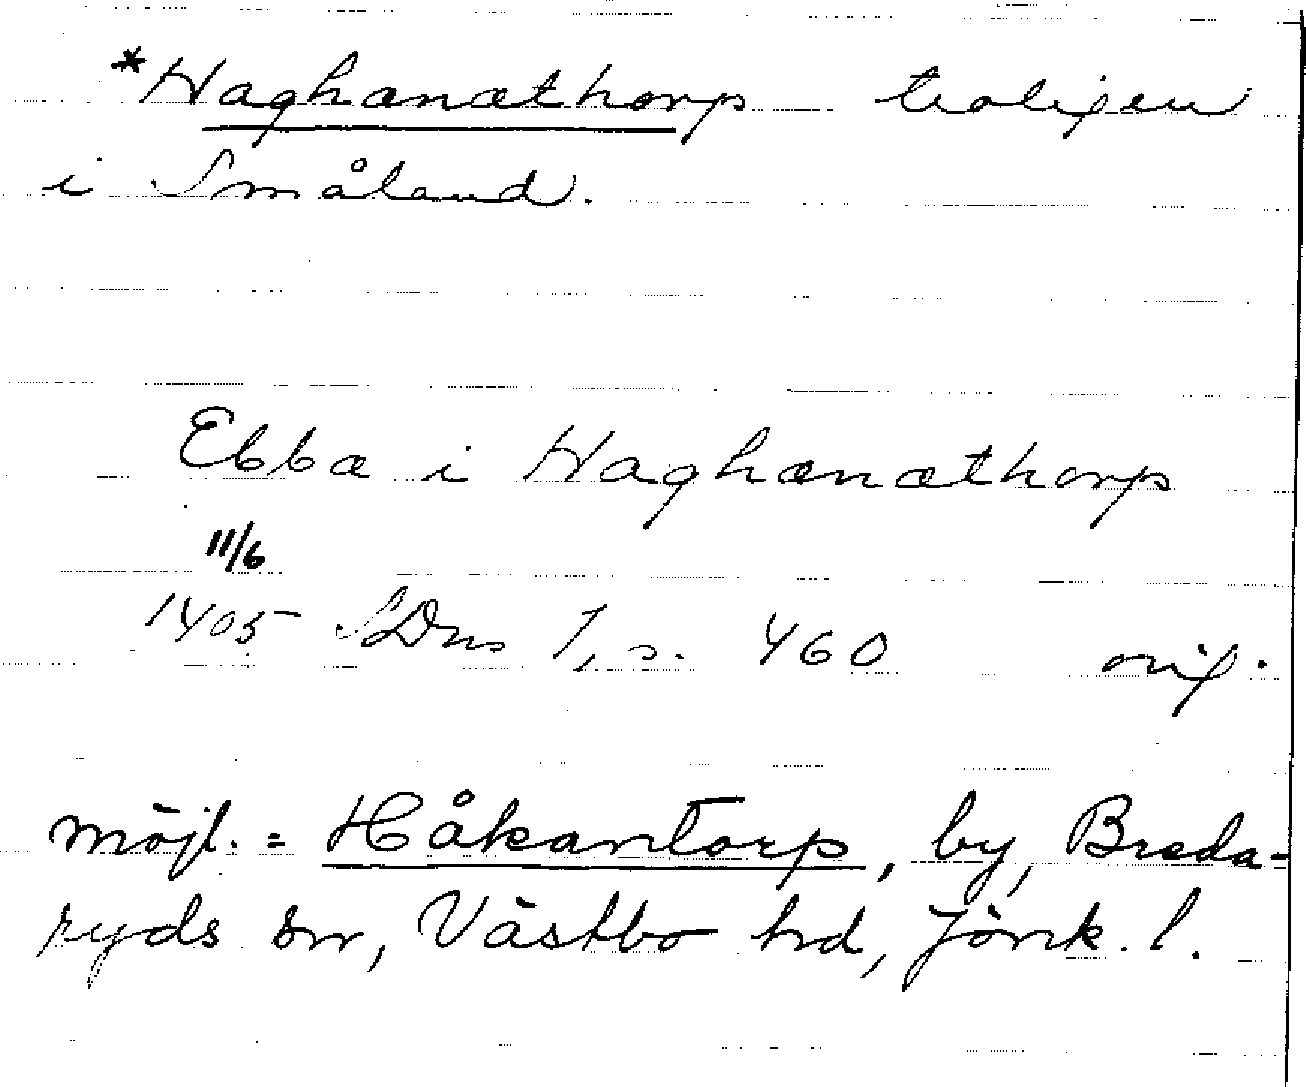 *Haghanæthorp troligen
i Småland.
Ebbæ i Haghænæthorp
11/6
1405 SDns 1, s. 460 orig.
möjl. = Håkantorp, by, Breda-
ryds sn, Västbo hd, Jönk. l.